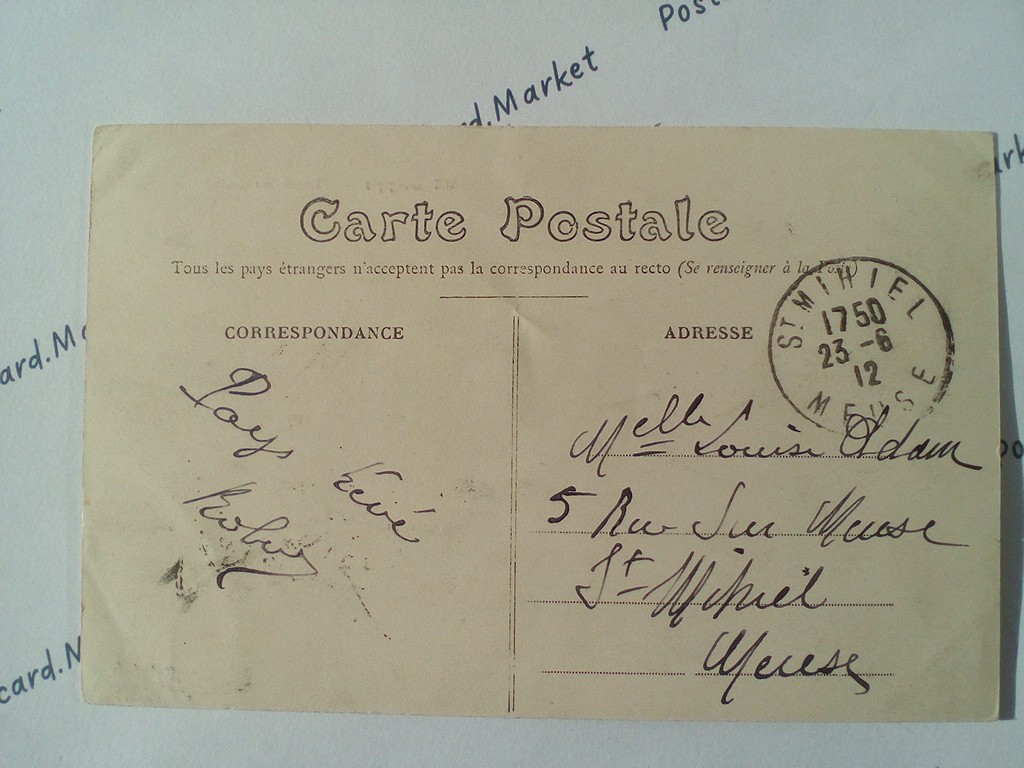 Post
d.Market
ark
ard.Ma
card.M
Carte Postale
Tous les pays étrangers n'acceptent pas la correspondance au recto (Se renseigner à la Poste)
CORRESPONDANCE
ADRESSE
ST MIHIEL
1750
23 -6
12
MEUSE
Melle Louise Adam
5 Rue Sur Meuse
St Mihiel
Meuse